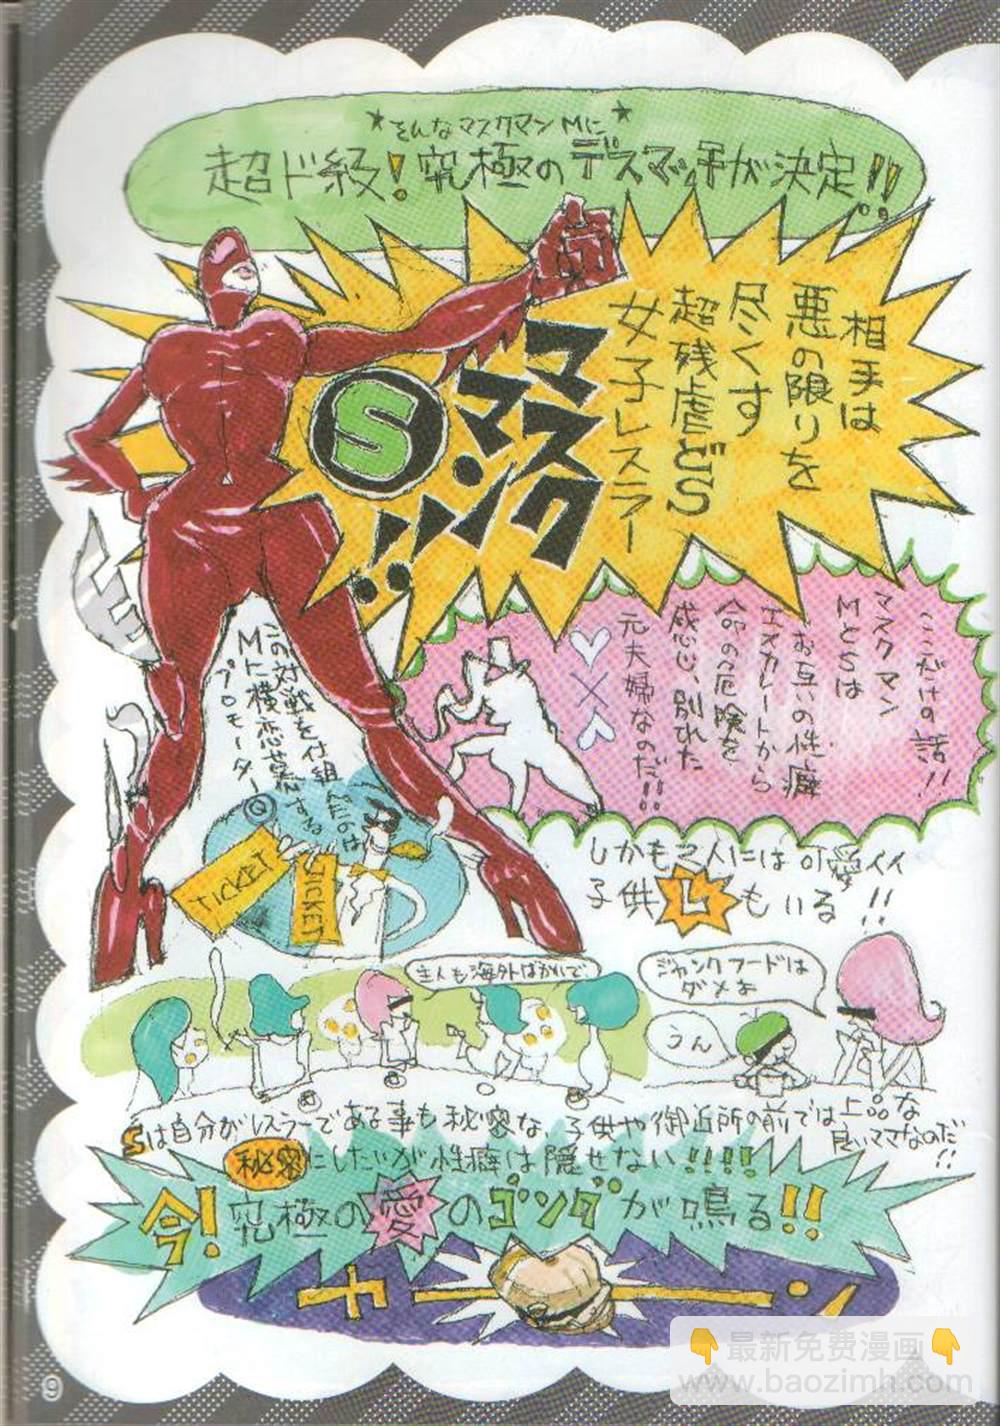 ★そんなマスクマンMに★
超ド級！究極のデスマッチが決定!!
相手は
悪の限りを
尽くす
超残虐どS
女子レスラー
マスク
マン
S!!
ここだけの話!!
マスクマン
MとSは
お互いの性癖
エスカレートから
命の危険を
感じ、別れた
元夫婦なのだ!!
この対戦を仕組んだのは
Mに横恋慕する
プロモーターQ
TICKET
TICKET
しかも2人には可愛イイ
子供Lもいる!!
主人も海外ばかりで
ジャンクフードは
ダメよ
うん
Sは自分がレスラーである事も秘密な、子供や御近所の前では上品な
良いママなのだ!!
秘密にしたいが性癖は隠せない!!!!
今！究極の愛のゴングが鳴る!!
チーン
9
最新免费漫画
www.baozimh.com